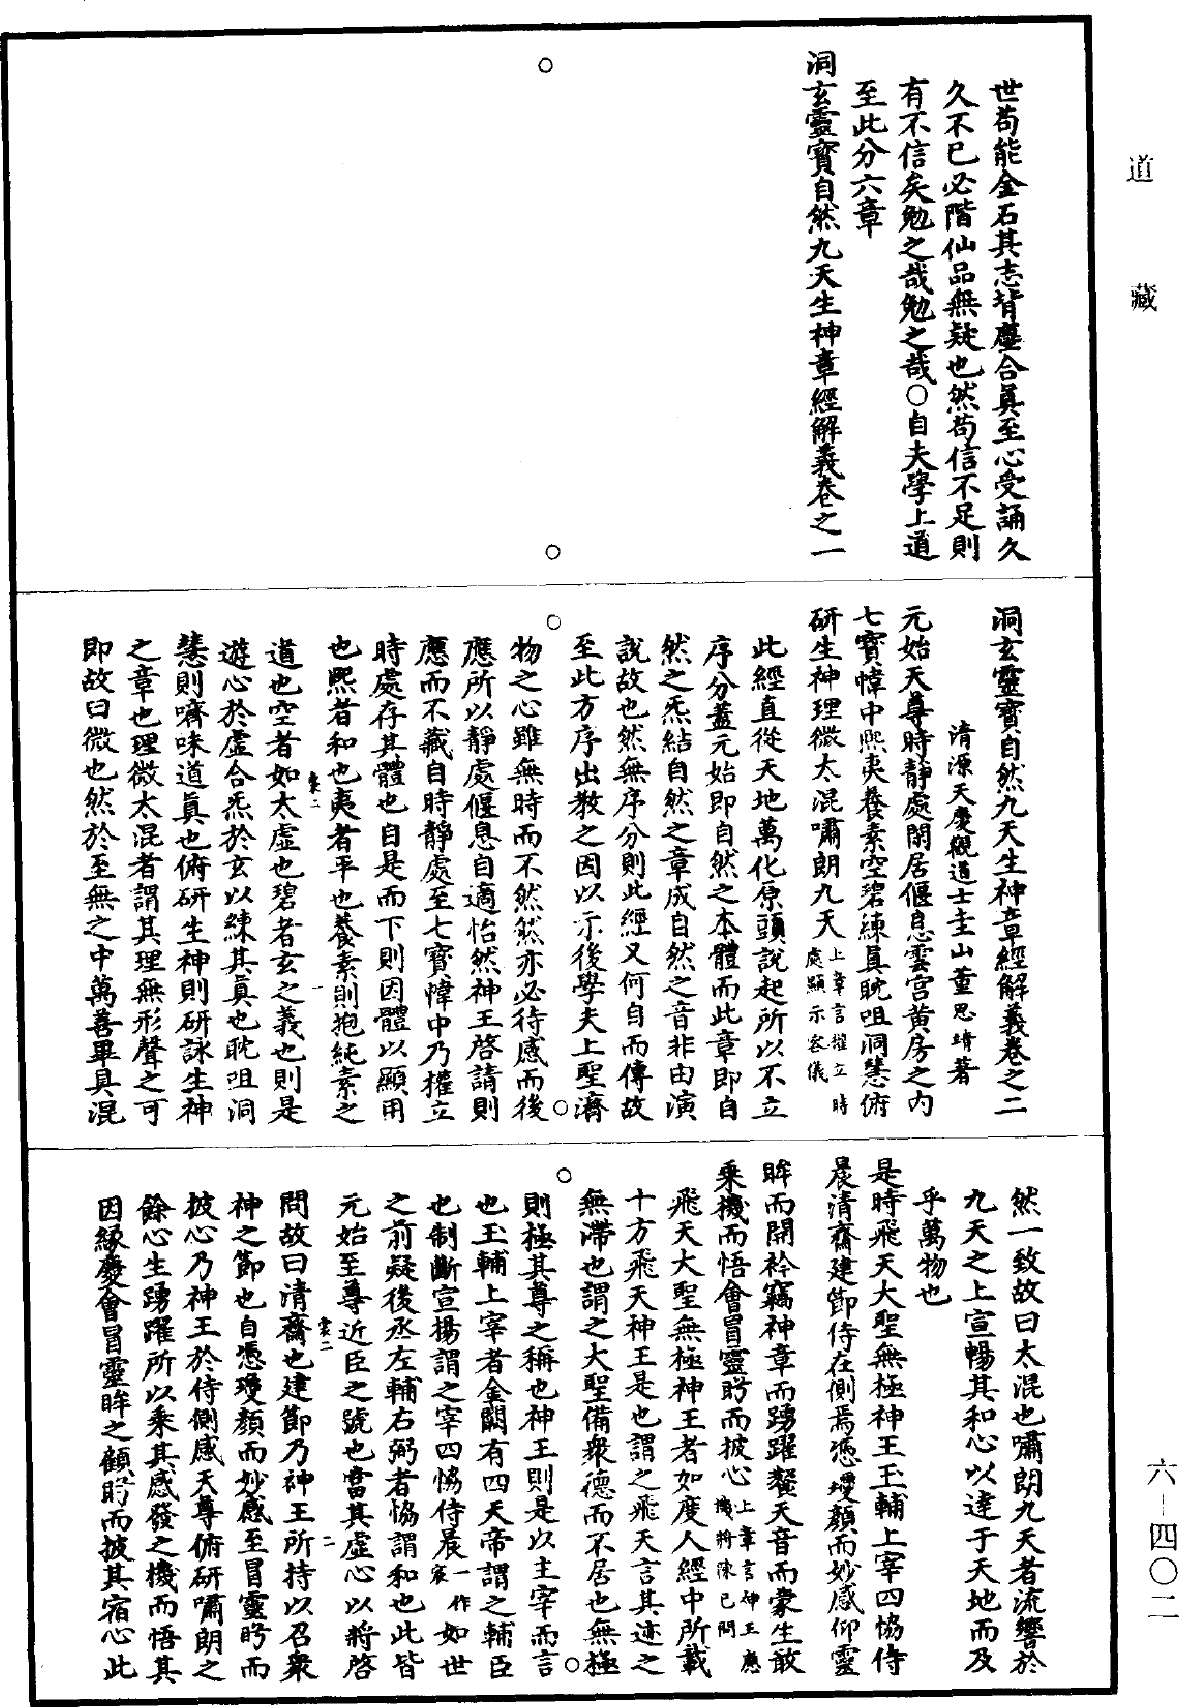 道藏
世苟能金石其志背塵合眞至心受誦久
久不已必階仙品無疑也然苟信不足則
有不信矣勉之哉勉之哉○自夫學上道
至此分六章
洞玄靈寶自然九天生神章經解義卷之一
洞玄靈寶自然九天生神章經解義卷之二
清源天慶觀道士圭山董思靖著
元始天尊時靜處閑居偃息雲宮黃房之內
七寶幃中熙夷養素空碧練眞眈咀洞慧俯
研生神理微太混嘯朗九天上章言權立時
處顯示容儀
此經直從天地萬化原頭說起所以不立
序分蓋元始即自然之本體而此章即自
然之炁結自然之章成自然之音非由演
說故也然無序分則此經又何自而傳故
至此方序出教之因以示後學夫上聖濟
物之心雖無時而不然然亦必待感而後
應所以靜處偃息自適怡然神王啓請則
應而不藏自時靜處至七寶幃中乃權立
時處存其體也自是而下則因體以顯用
也熙者和也夷者平也養素則抱純素之
道也空者如太虛也碧者玄之義也則是
遊心於虛合炁於玄以練其眞也眈咀洞
慧則嚌味道眞也俯研生神則研詠生神
之章也理微太混者謂其理無形聲之可
即故曰微也然於至無之中萬善畢具混
然一致故曰太混也嘯朗九天者流響於
九天之上宣暢其和心以達于天地而及
乎萬物也
是時飛天大聖無極神王玉輔上宰四恊侍
晨清齋建節侍在側焉憑瓊顏而妙感仰靈
眸而開衿竊神章而踴躍餐天音而蒙生敢
乘機而悟會冒靈眄而披心上章言神王應
機將陳已問
飛天大聖無極神王者如度人經中所載
十方飛天神王是也謂之飛天言其迹之
無滯也謂之大聖備衆德而不居也無極
則極其尊之稱也神王則是以主宰而言
也玉輔上宰者金闕有四天帝謂之輔臣
也制斷宣揚謂之宰四恊侍晨一作
宸如世
之前疑後丞左輔右弼者恊謂和也此皆
元始至尊近臣之號也當其虛心以將啓
問故曰清齋也建節乃神王所持以召衆
神之節也自憑瓊顏而妙感至冒靈眄而
披心乃神王於侍側感天尊俯研嘯朗之
餘心生踴躍所以乘其感發之機而悟其
因緣慶會冒靈眸之顧眄而披其宿心此
六—四〇二